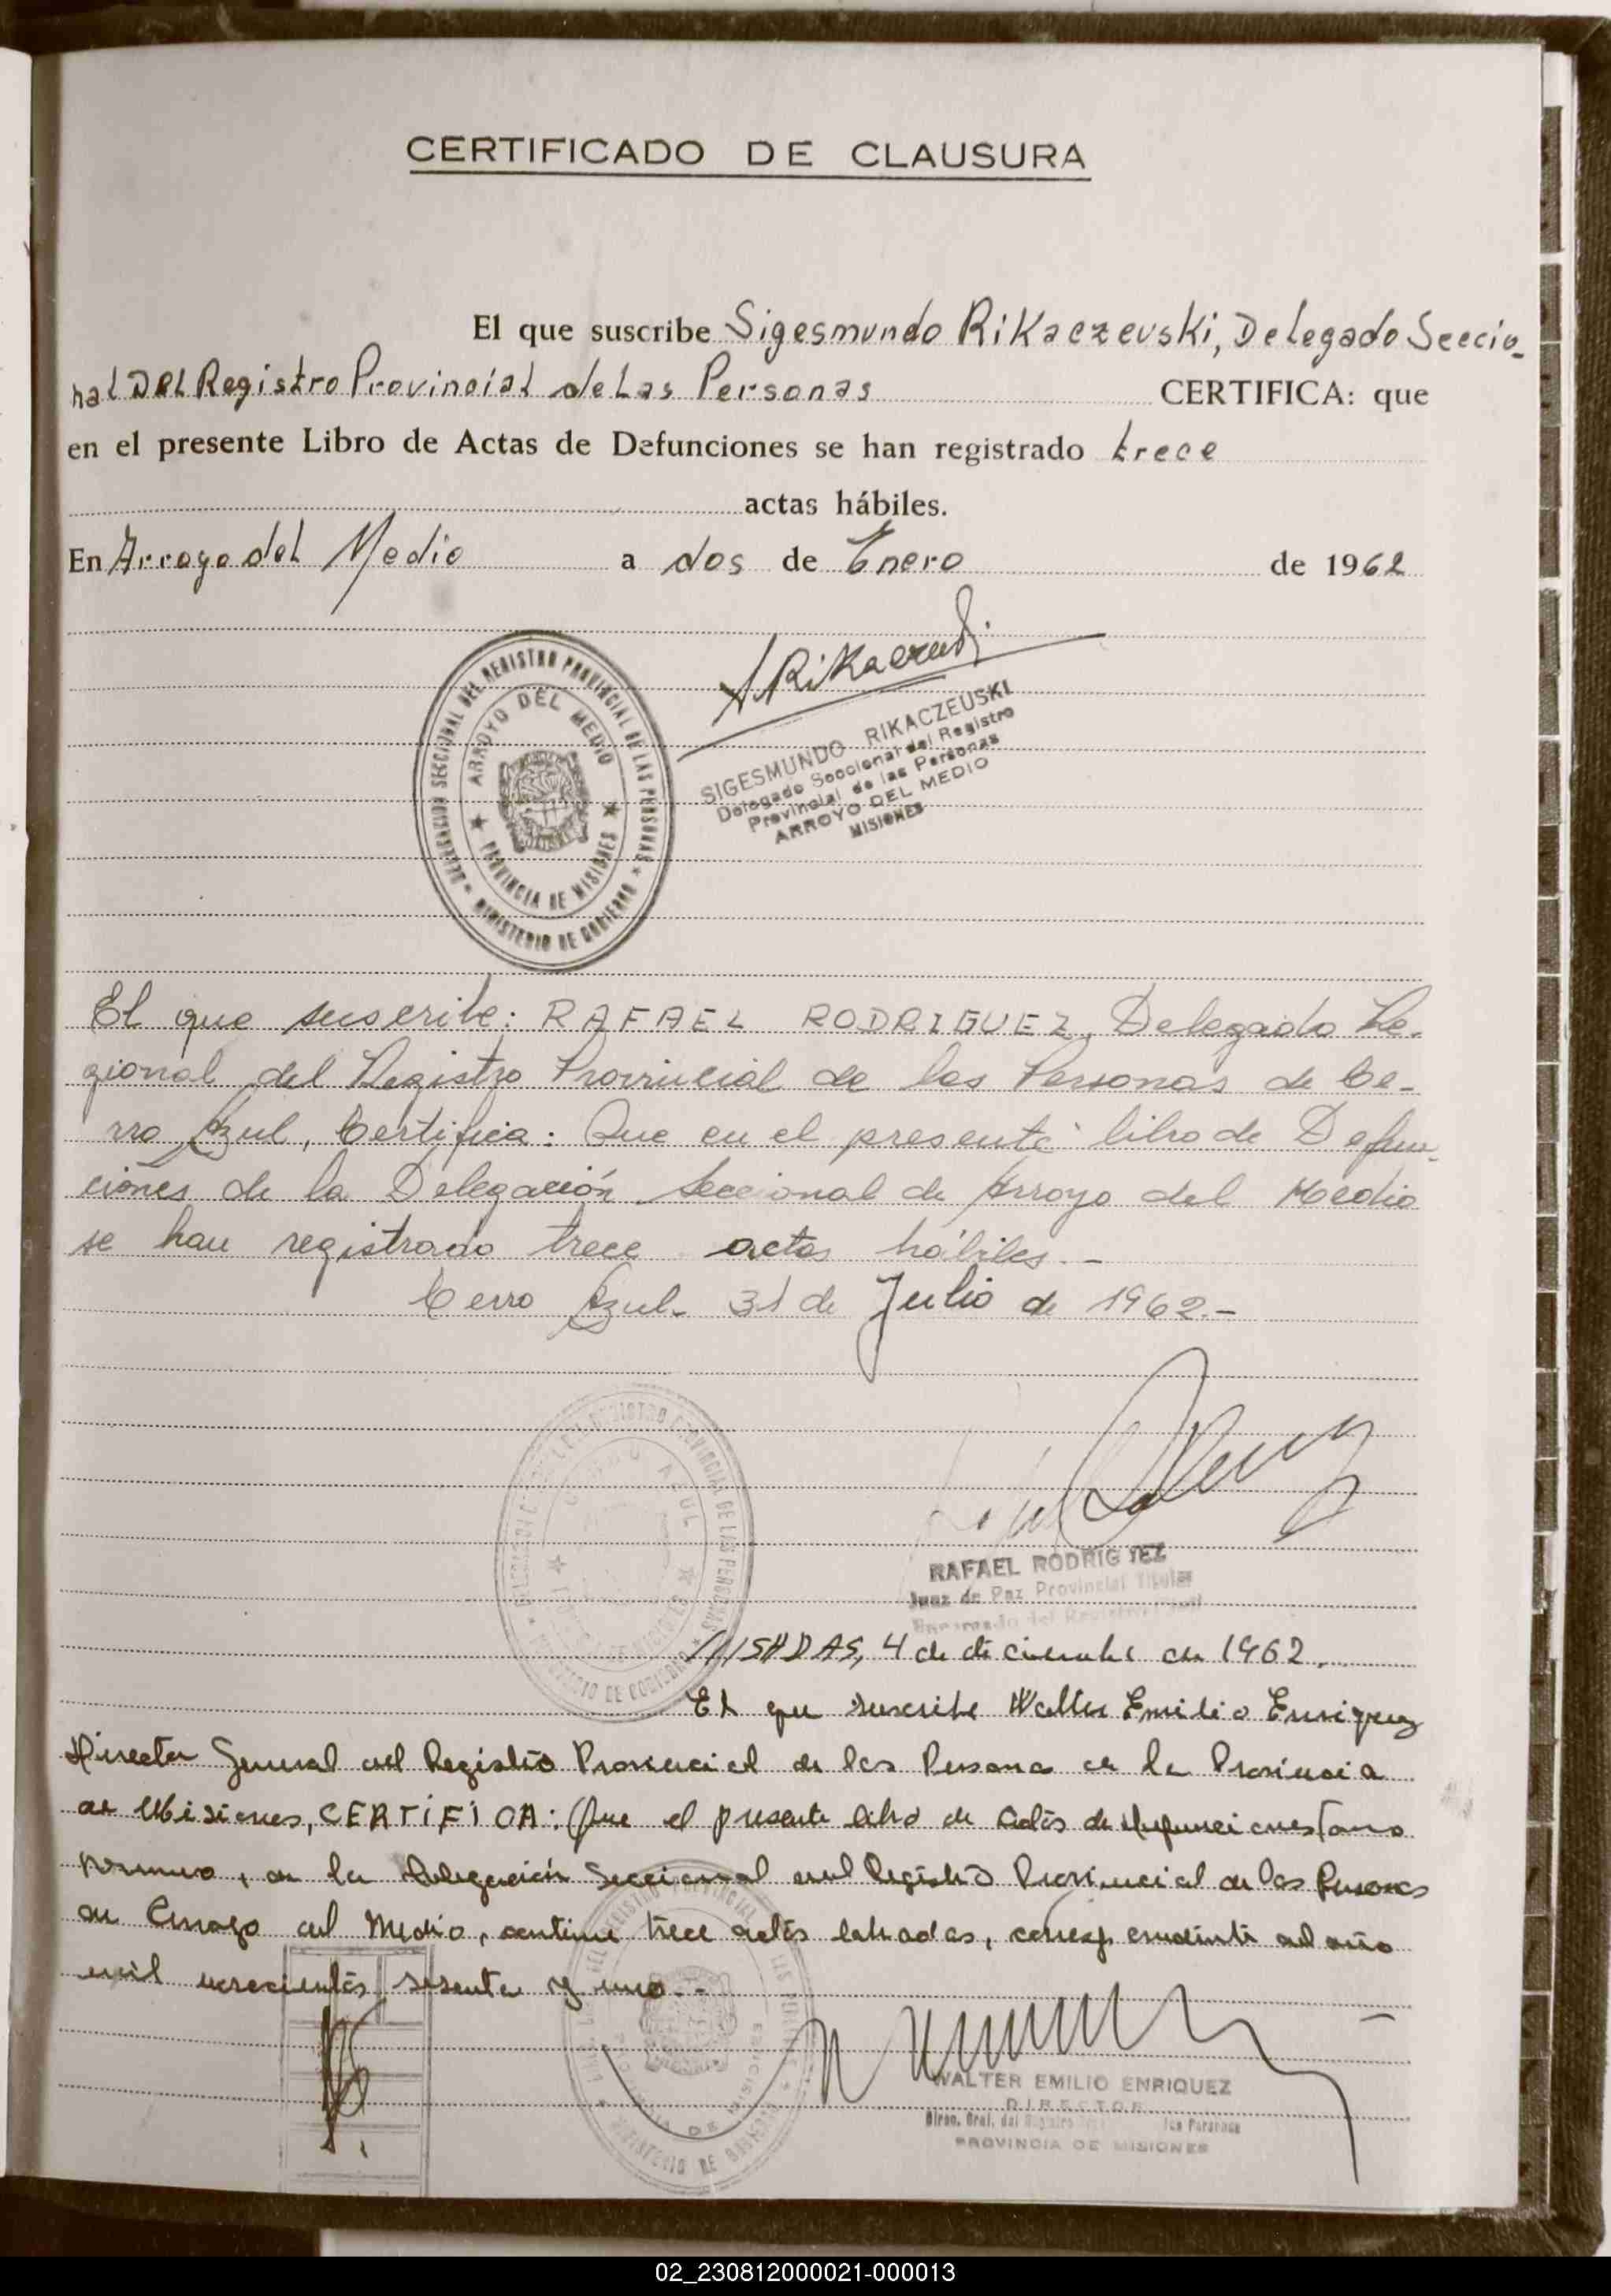 CERTIFICADO DE CLAUSURA
El que suscribe Sigesmundo Rikaczevski, Delegado Seccio-
nal Del Registro Provincial de Las Personas CERTIFICA: que
en el presente Libro de Actas de Defunciones se han registrado trece
actas hábiles.
En Arroyo del Medio a dos de Enero de 1962
S. Rikaczeuski
SIGESMUNDO RIKACZEUSKI
Delegado Seccional del Registro
Provincial de las Personas
ARROYO DEL MEDIO
MISIONES
DELEGACION SECCIONAL DEL REGISTRO PROVINCIAL DE LAS PERSONAS
MINISTERIO DE GOBIERNO
ARROYO DEL MEDIO
PROVINCIA DE MISIONES
El que suscribe: RAFAEL RODRIGUEZ, Delegado Re-
gional del Registro Provincial de las Personas de Ce-
rro Azul, Certifica: Que en el presente libro de Defun-
ciones de la Delegación Seccional de Arroyo del Medio
se han registrado trece actas hábiles.-
Cerro Azul. 31 de Julio de 1962.-
REGISTRO PROVINCIAL DE LAS PERSONAS
MINISTERIO DE GOBIERNO
CERRO AZUL
RAFAEL RODRIGUEZ
Juez de Paz Provincial Titular
Encargado del Registro Civil
POSADAS, 4 de diciembre de 1962.
El que suscribe Walter Emilio Enriquez
Director General del Registro Provincial de las Personas de la Provincia
de Misiones, CERTIFICA: Que el presente libro de actas de defunciones tomo
primero, de la Delegación Seccional del Registro Provincial de las Personas
de Arroyo del Medio, contiene trece actas labradas, correspondiente al año
mil novecientos sesenta y uno.-
REGISTRO PROVINCIAL DE LAS PERSONAS
MINISTERIO DE GOBIERNO
PROVINCIA DE MISIONES
WALTER EMILIO ENRIQUEZ
DIRECTOR
Direc. Gral. del Registro las Personas
PROVINCIA DE MISIONES
02_230812000021-000013